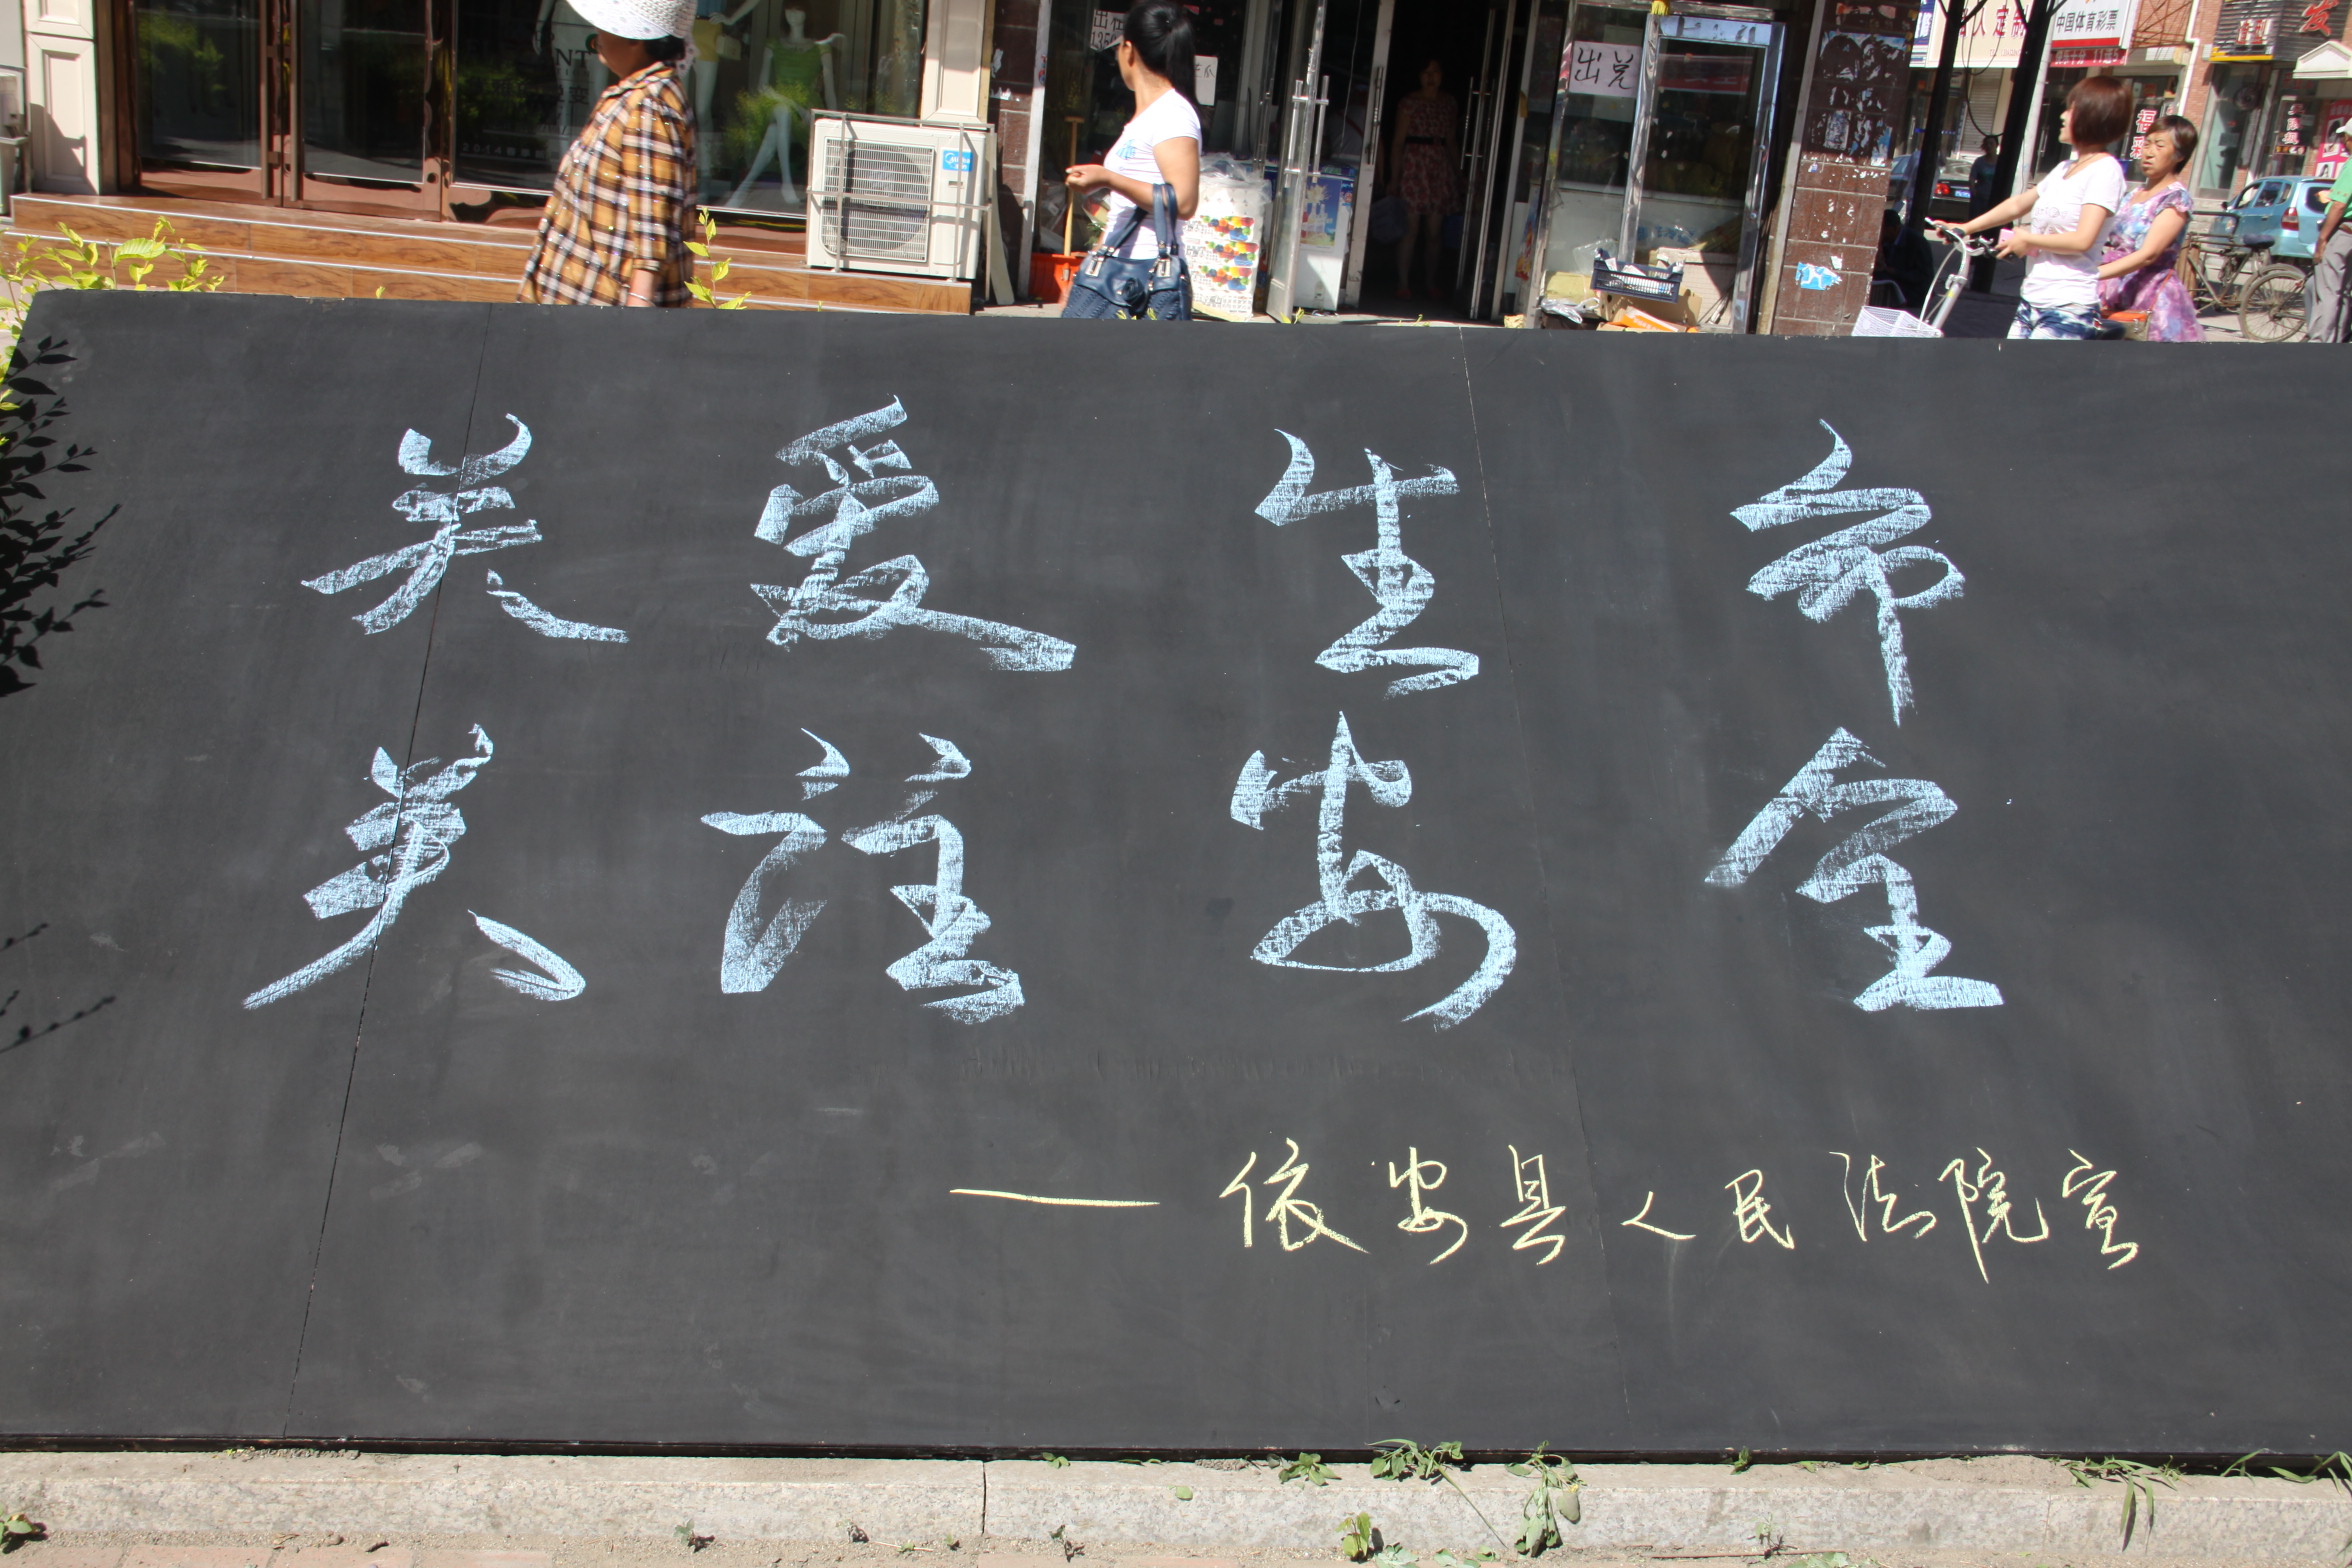 关爱生命
关注安全
—依安县人民法院宣
出兑
中国体育彩票
福彩
2014
Midea